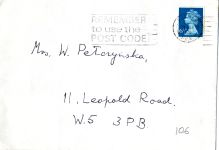 REMEMBER
to use the
POST CODE
Mrs. W. Petorynska,
11. Leopold Road.
W.5 3PB.
106